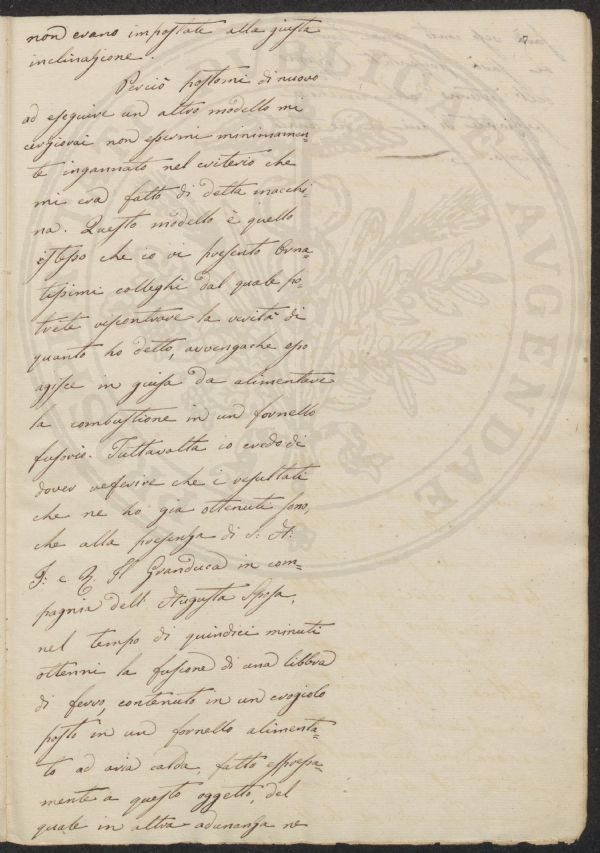 non erano impostate alla giusta
inclinazione.
Perciò postomi di nuovo
ad eseguire un altro modello mi
cerziorai non essermi minimamen-
te ingannato nel criterio che
mi era fatto di detta macchi-
na. Questo modello è quello
istesso che io vi presento Orna-
tissimi colleghi dal quale po-
trete riscontrare la verità di
quanto ho detto, avvengache esso
agisce in guisa da alimentare
la combustione in un fornello
fusorio. Tuttavolta io credo di
dover referire che i resultati
che ne ho già ottenuti sono,
che alla presenza di S: A:
I: e R. Il Granduca in com-
pagnia dell'Augusta Sposa,
nel tempo di quindici minuti
ottenni la fusione di una libbra
di ferro, contenuto in un crogiolo
posto in un fornello alimenta-
to ad aria calda, fatto espressa-
mente a questo oggetto, del
quale in altra adunanza ne